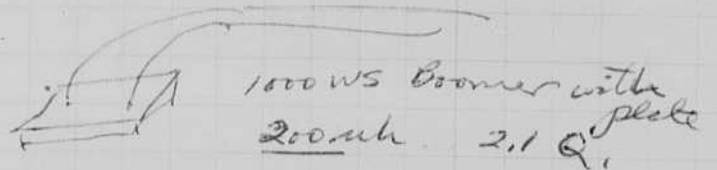 1000 WS Boomer with plate
200 uh 2.1 Q.